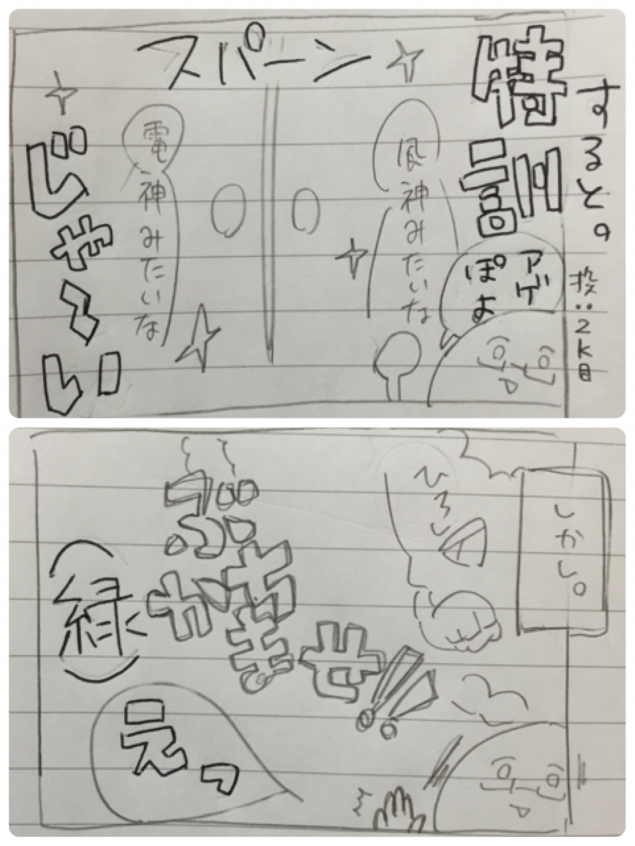 すると。
特訓
投:2K目
アゲ
ぽよ
スパーン
風神みたいな
雷神みたいな
じゃ〜い
しかし。
ひろし
ぶや
かきませ!!
(緑)
えっ